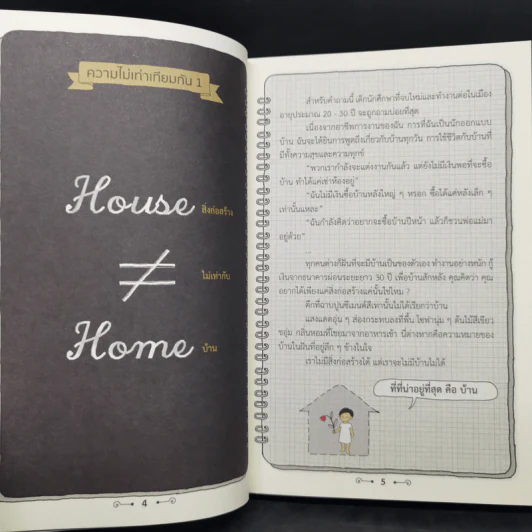 ความไม่เท่าเทียมกัน 1
House สิ่งก่อสร้าง
≠ ไม่เท่ากับ
Home บ้าน
4
สำหรับคำถามนี้ เด็กนักศึกษาที่จบใหม่และทำงานต่อในเมือง
อายุประมาณ 20 - 30 ปี จะถูกถามบ่อยที่สุด
เนื่องจากอาชีพการงานของฉัน การที่ฉันเป็นนักออกแบบ
บ้าน ฉันจะได้ยินการพูดถึงเกี่ยวกับบ้านทุกวัน การใช้ชีวิตกับบ้านที่
มีทั้งความสุขและความทุกข์
"พวกเรากำลังจะแต่งงานกันแล้ว แต่ยังไม่มีเงินพอที่จะซื้อ
บ้าน ทำได้แค่เช่าห้องอยู่"
"ฉันไม่มีเงินซื้อบ้านหลังใหญ่ ๆ หรอก ซื้อได้แค่หลังเล็ก ๆ
เท่านั้นแหละ"
"ฉันกำลังคิดว่าอยากจะซื้อบ้านปีหน้า แล้วก็ชวนพ่อแม่มา
อยู่ด้วย"
...
ทุกคนต่างก็ฝันที่จะมีบ้านเป็นของตัวเอง ทำงานอย่างหนัก กู้
เงินจากธนาคารผ่อนระยะยาว 30 ปี เพื่อบ้านสักหลัง คุณคิดว่า คุณ
อยากได้เพียงแค่สิ่งก่อสร้างแค่นั้นใช่ไหม ?
ตึกที่ฉาบปูนซีเมนต์สีเทานั้นไม่ได้เรียกว่าบ้าน
แสงแดดอุ่น ๆ ส่องกระทบลงที่พื้น โซฟานุ่ม ๆ ต้นไม้สีเขียว
ชอุ่ม กลิ่นหอมที่โชยมาจากอาหารเช้า นี่ต่างหากคือความหมายของ
บ้านในฝันที่อยู่ลึก ๆ ข้างในใจ
เราไม่มีสิ่งก่อสร้างได้ แต่เราจะไม่มีบ้านไม่ได้
ที่ที่น่าอยู่ที่สุด คือ บ้าน
5